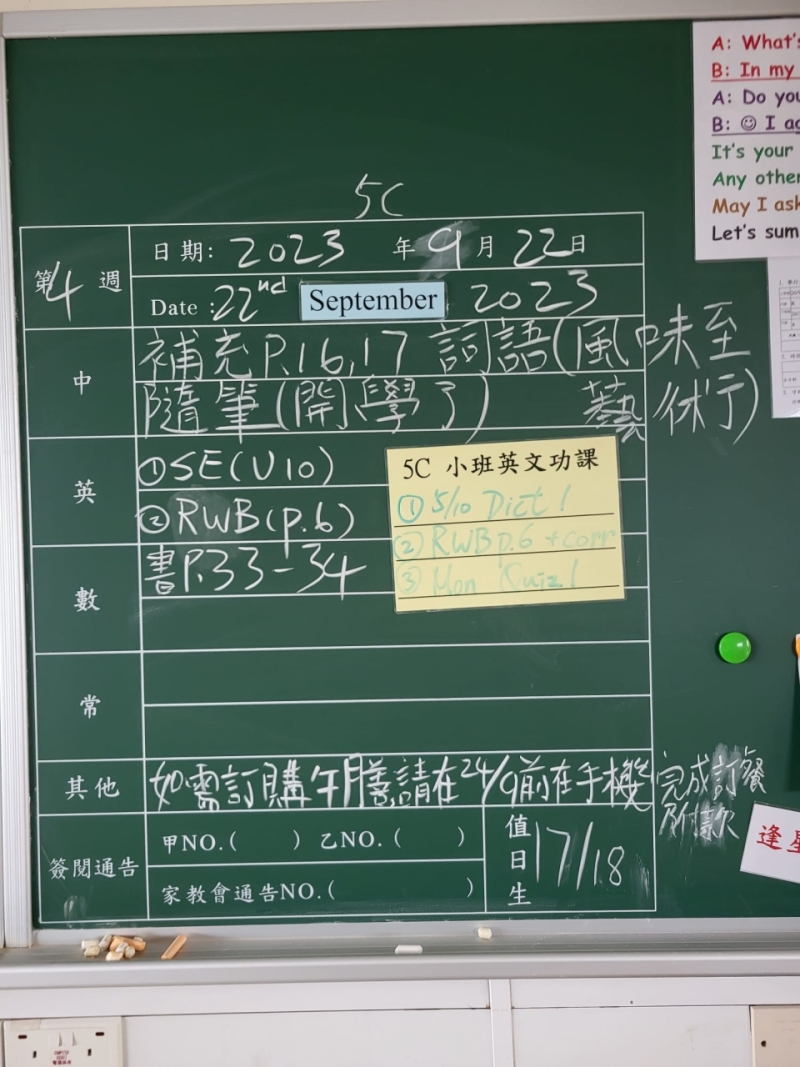 5C
第4週
日期: 2023 年 9 月 22 日
Date : 22nd September 2023
中
補充P.16,17 詞語(風味至
藝術)
隨筆(開學了)
英
①SE(U10)
②RWB(p.6)
5C 小班英文功課
① 5/10 Dict 1
② RWB p.6 + corr
③ Mon Quiz 1
數
書P.33-34
常
其他
如需訂購午膳,請在24/9前在手機完成訂餐
及付款
簽閱通告
甲NO.( ) 乙NO.( )
家教會通告NO.( )
值日生
17/18
A: What's
B: In my
A: Do you
B: ☺ I ag
It's your
Any other
May I ask
Let's sum
逢星